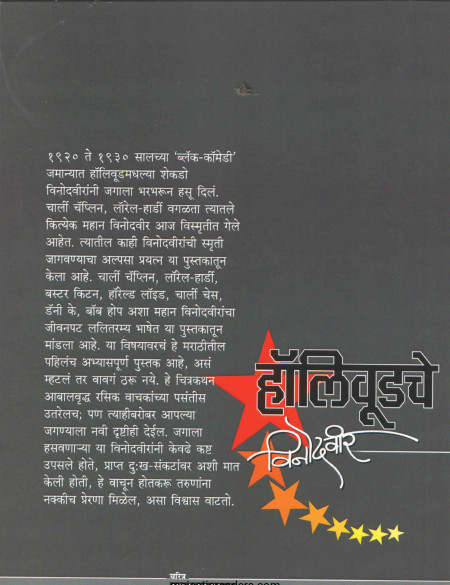 १९२० ते १९३० सालच्या 'ब्लॅक-कॉमेडी'
जमान्यात हॉलिवूडमधल्या शेकडो
विनोदवीरांनी जगाला भरभरून हसू दिलं.
चार्ली चॅप्लिन, लॉरेल-हार्डी वगळता त्यातले
कित्येक महान विनोदवीर आज विस्मृतीत गेले
आहेत. त्यातील काही विनोदवीरांची स्मृती
जागवण्याचा अल्पसा प्रयत्न या पुस्तकातून
केला आहे. चार्ली चॅप्लिन, लॉरेल-हार्डी,
बस्टर किटन, हॅरॉल्ड लॉइड, चार्ली चेस,
डॅनी के, बॉब होप अशा महान विनोदवीरांचा
जीवनपट ललितरम्य भाषेत या पुस्तकातून
मांडला आहे. या विषयावरचं हे मराठीतील
पहिलंच अभ्यासपूर्ण पुस्तक आहे, असं
म्हटलं तर वावगं ठरू नये. हे चित्रकथन
आबालवृद्ध रसिक वाचकांच्या पसंतीस
उतरेलच; पण त्याहीबरोबर आपल्या
जगण्याला नवी दृष्टीही देईल. जगाला
हसवणाऱ्या या विनोदवीरांनी केवढे कष्ट
उपसले होते, प्राप्त दुःख-संकटांवर अशी मात
केली होती, हे वाचून होतकरू तरुणांना
नक्कीच प्रेरणा मिळेल, असा विश्वास वाटतो.
हॉलिवूडचे
विनोदवीर